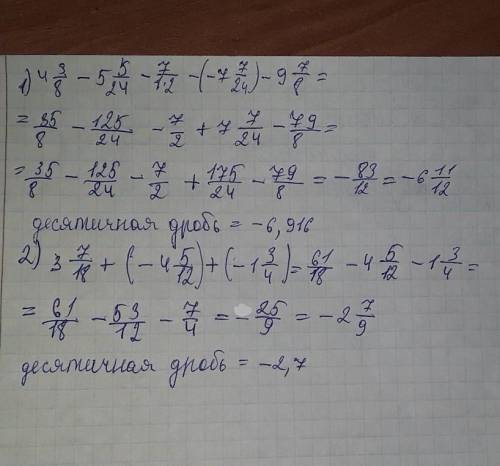 1) 4 3/8 - 5 5/24 - 7/12 - (-7 7/24) - 9 7/8 =
= 35/8 - 125/24 - 7/2 + 7 7/24 - 79/8 =
= 35/8 - 125/24 - 7/2 + 175/24 - 79/8 = - 83/12 = -6 11/12
десятичная дробь = -6,916
2) 3 7/18 + (-4 5/12) + (-1 3/4) = 61/18 - 4 5/12 - 1 3/4 =
= 61/18 - 53/12 - 7/4 = - 25/9 = -2 7/9
десятичная дробь = -2,7